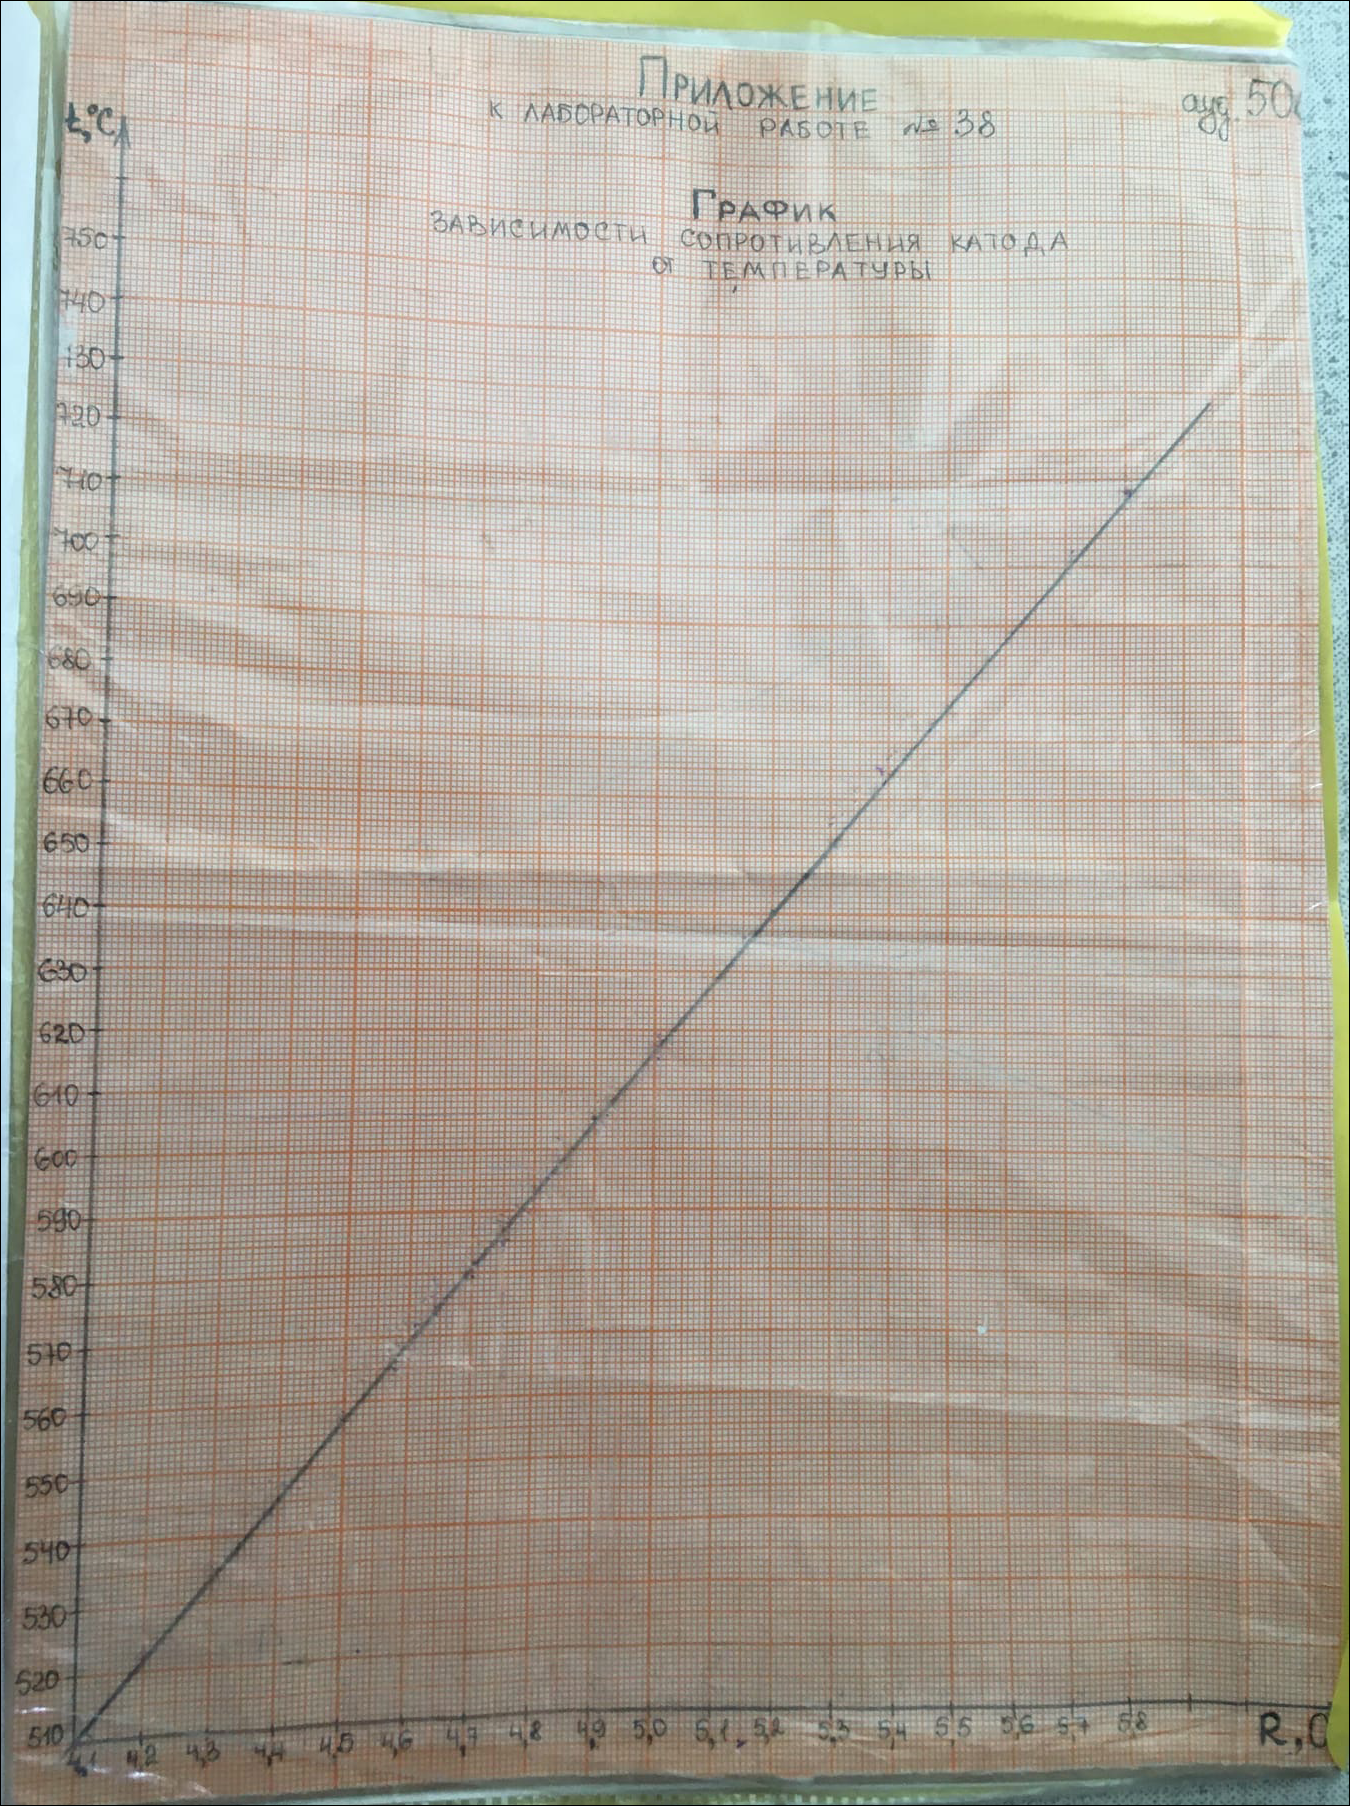 Приложение
к лабораторной работе № 38
ауд. 50
t,°C
График
зависимости сопротивления катода
от температуры
750
740
730
720
710
700
690
680
670
660
650
640
630
620
610
600
590
580
570
560
550
540
530
520
510
4,1 4,2 4,3 4,4 4,5 4,6 4,7 4,8 4,9 5,0 5,1 5,2 5,3 5,4 5,5 5,6 5,7 5,8
R, О